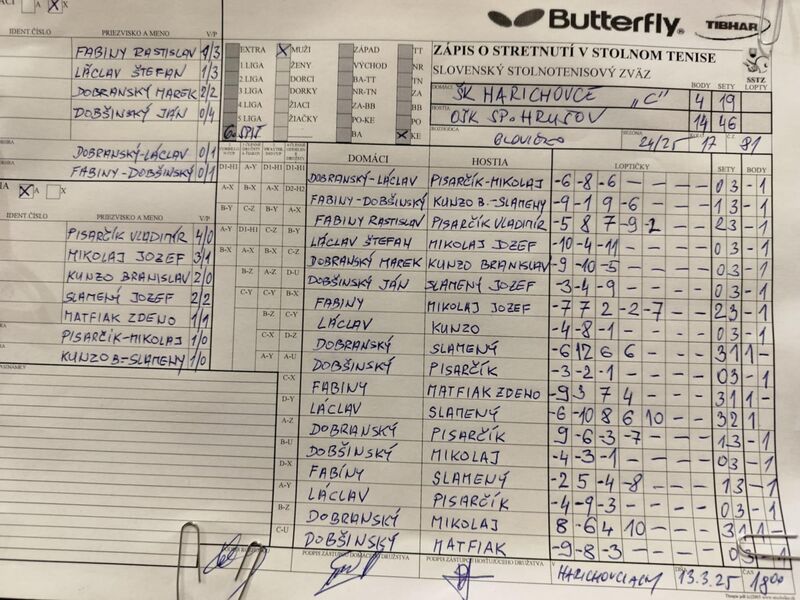 Butterfly
TIBHAR
ZÁPIS O STRETNUTÍ V STOLNOM TENISE
SLOVENSKÝ STOLNOTENISOVÝ ZVÄZ
SSTZ
BODY SETY LOPTY
DOMÁCI ŠK HARICHOVCE "C" 4 19
HOSTIA OŠK SP. HRUŠOV 14 46
ROZHODCA SEZÓNA 24/25 17 81
EXTRA X MUŽI ZÁPAD TT
1 LIGA ŽENY VÝCHOD NR
2 LIGA DORCI BA-TT TN
3 LIGA DORKY NR-TN ZA
4 LIGA ŽIACI ZA-BB BB
5 LIGA ŽIAČKY PO-KE PO
6. SPIŠ BA X KE
X A X
IDENT.ČÍSLO PRIEZVISKO A MENO V/P
FABINY RASTISLAV 1/3
LÁCLAV ŠTEFAN 1/3
DOBRANSKÝ MAREK 2/2
DOBŠINSKÝ JÁN 0/4
DOBRANSKÝ-LÁCLAV 0/1
FABINY-DOBŠINSKÝ 0/1
X A X
IDENT.ČÍSLO PRIEZVISKO A MENO V/P
PISARČÍK VLADIMÍR 4/0
MIKOLAJ JOZEF 3/1
KUNZO BRANISLAV 2/0
SLAMENÝ JOZEF 2/2
MATFIAK ZDENO 1/1
PISARČÍK-MIKOLAJ 1/0
KUNZO B-SLAMENÝ 1/0
DOMÁCI HOSTIA LOPTIČKY SETY BODY
DOBRANSKÝ-LÁCLAV PISARČÍK-MIKOLAJ -6 -8 -6 - - - - 0 3 - 1
FABINY-DOBŠINSKÝ KUNZO B.-SLAMENÝ -9 -1 9 -6 - - - 1 3 - 1
FABINY RASTISLAV PISARČÍK VLADIMÍR -5 8 7 -9 -2 - - 2 3 - 1
LÁCLAV ŠTEFAN MIKOLAJ JOZEF -10 -4 -11 - - - - 0 3 - 1
DOBRANSKÝ MAREK KUNZO BRANISLAV -9 -10 -5 - - - - 0 3 - 1
DOBŠINSKÝ JÁN SLAMENÝ JOZEF -3 -4 -9 - - - - 0 3 - 1
FABINY MIKOLAJ JOZEF -7 7 2 -2 -7 - - 2 3 - 1
LÁCLAV KUNZO -4 -8 -1 - - - - 0 3 - 1
DOBRANSKÝ SLAMENÝ -6 12 6 6 - - - 3 1 1 -
DOBŠINSKÝ PISARČÍK -3 -2 -1 - - - - 0 3 - 1
FABINY MATFIAK ZDENO -9 3 7 4 - - - 3 1 1 -
LÁCLAV SLAMENÝ -6 -10 8 6 10 - - 3 2 1
DOBRANSKÝ PISARČÍK 9 -6 -3 -7 - - - 1 3 - 1
DOBŠINSKÝ MIKOLAJ -4 -3 -1 - - - - 0 3 - 1
FABINY SLAMENÝ -2 5 -4 -8 - - - 1 3 - 1
LÁCLAV PISARČÍK -4 -9 -3 - - - - 0 3 - 1
DOBRANSKÝ MIKOLAJ 8 -6 4 10 - - - 3 1 1 -
DOBŠINSKÝ MATFIAK -9 -8 -3 - - - - 0 3 - 1
PODPIS ZÁSTUPCU DOMÁCEHO DRUŽSTVA
PODPIS ZÁSTUPCU HOSŤUJÚCEHO DRUŽSTVA
V HARICHOVCIACH DŇA 13.3.25 ČAS 18 00